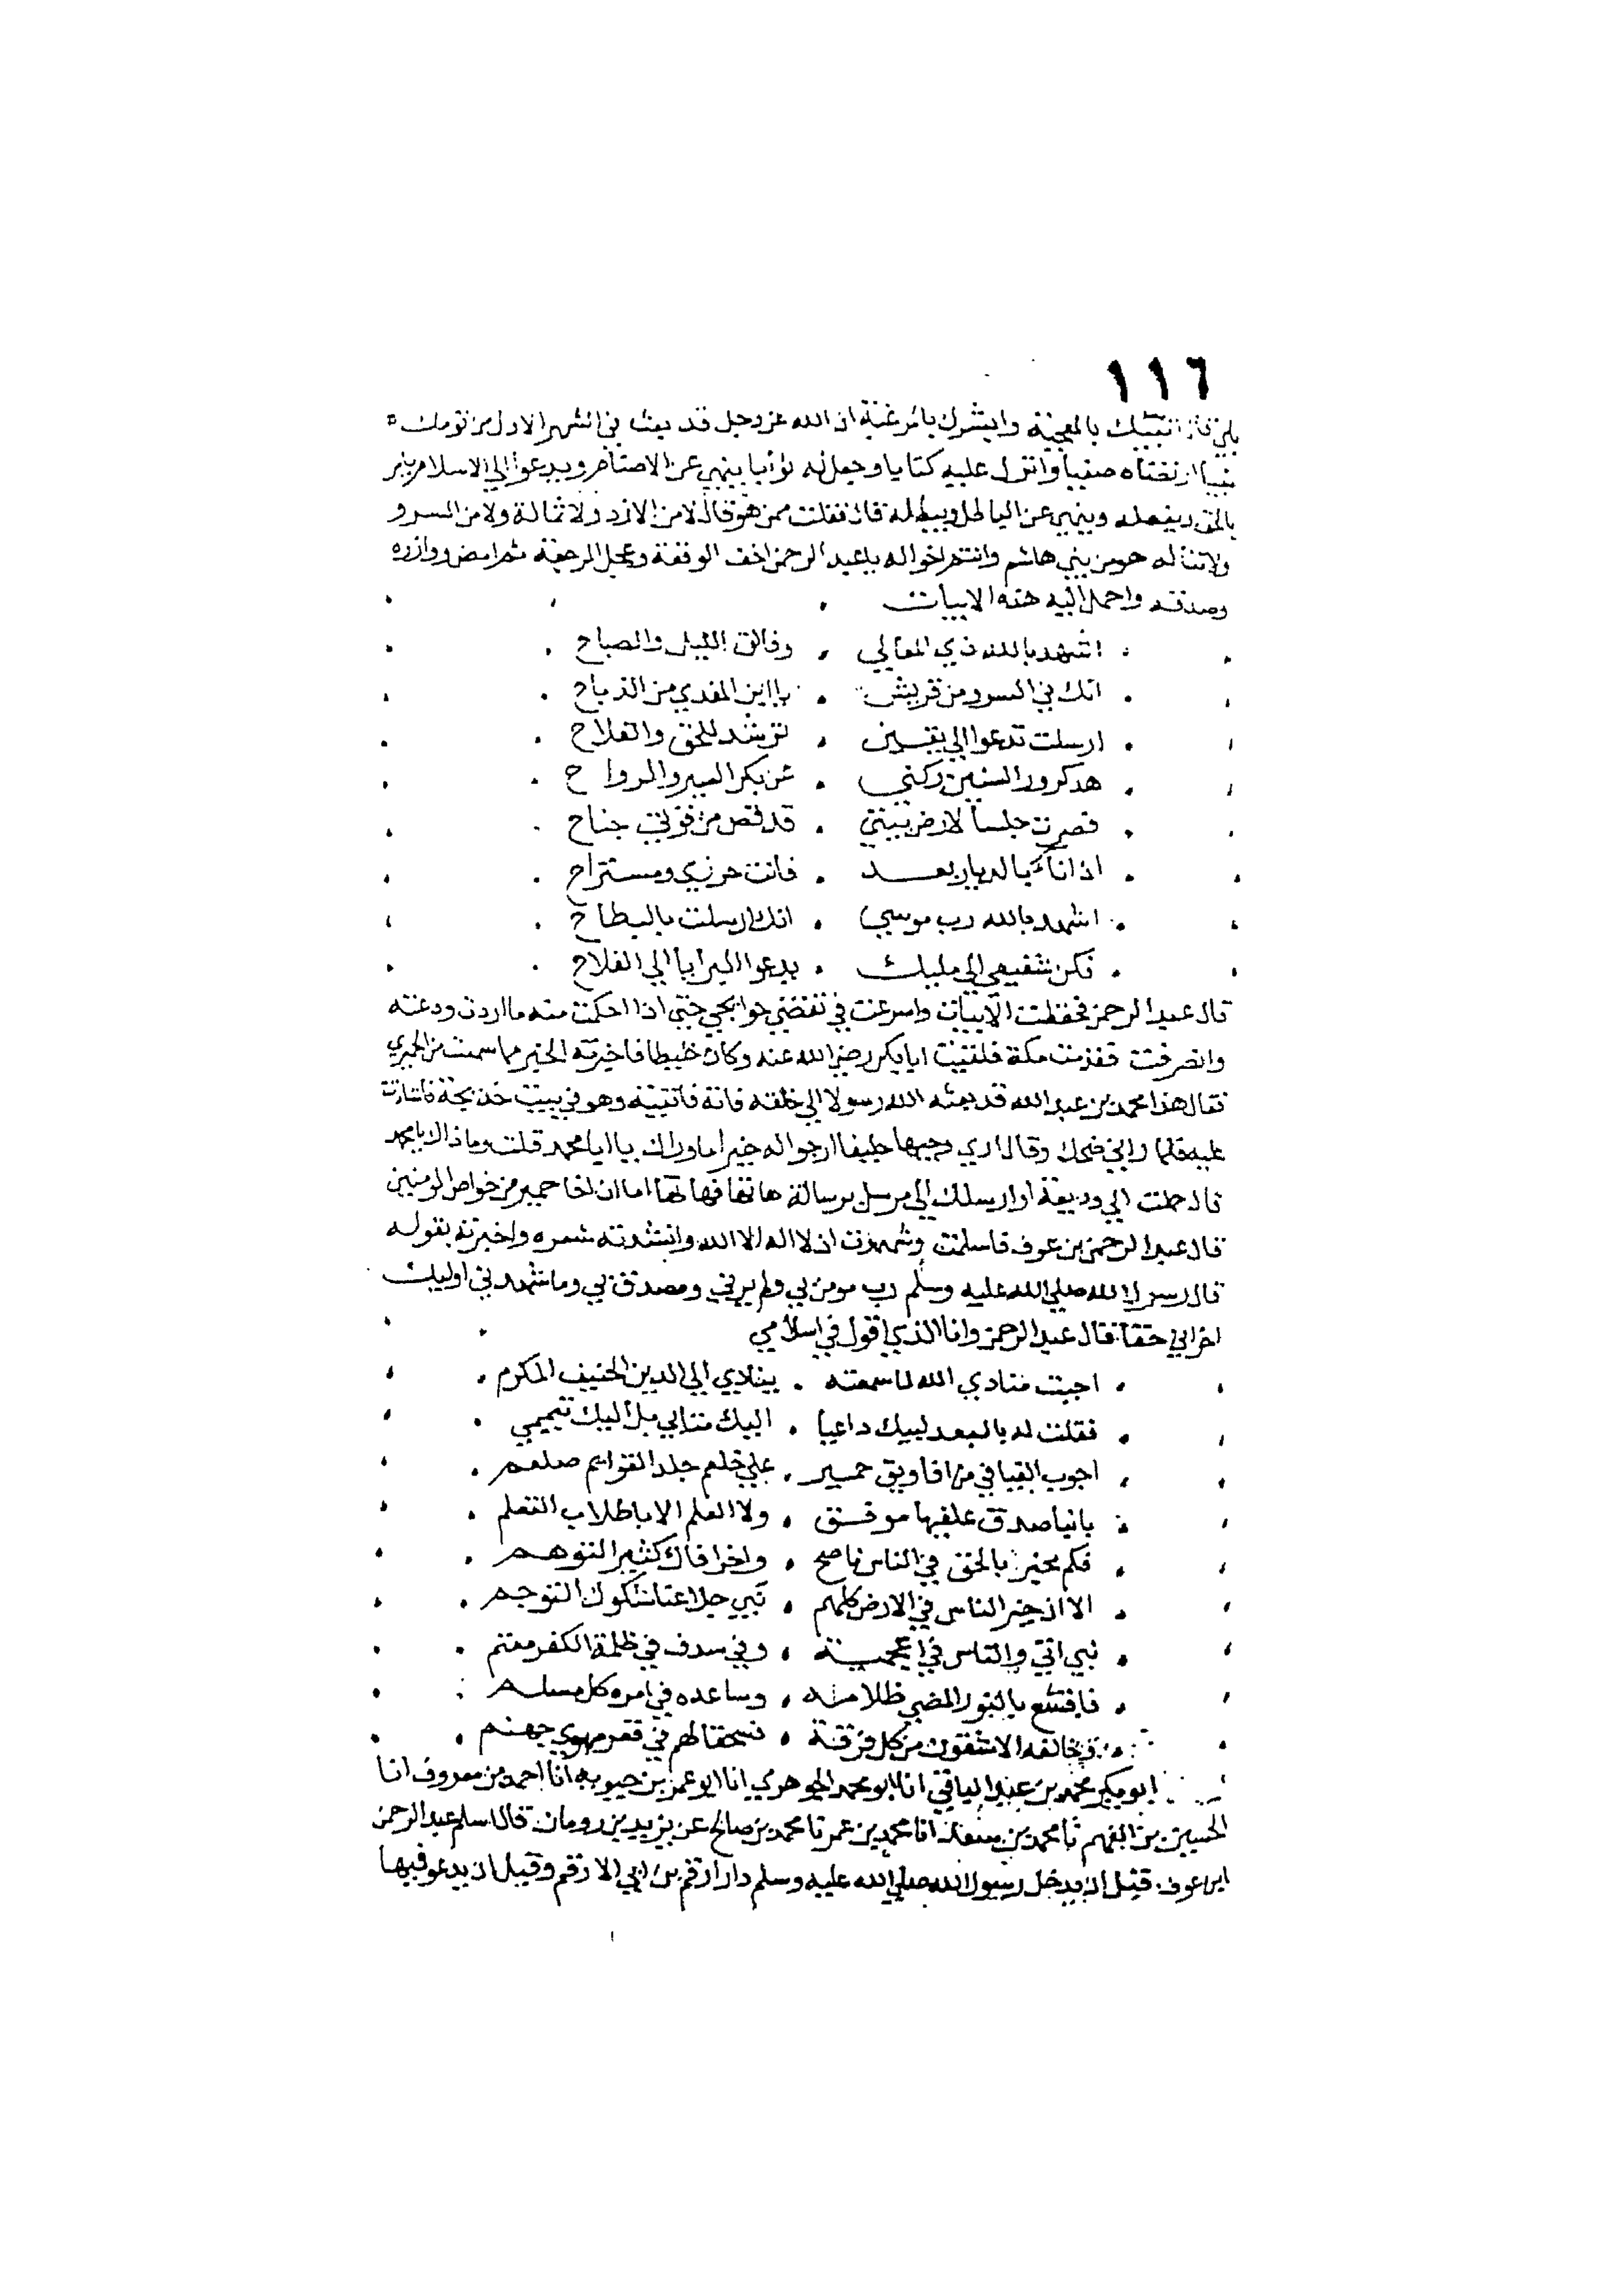 ١١٦
بلي قال انبئك بالمعجبة وابشرك بالمرغبة ان الله عز وجل قد بعث في الشهر الاول من قومك
نبيا ارتضاه صفيا وانزل عليه كتابا وجعل له ثوابا ينهي عن الاصنام ويدعوا الي الاسلام يامر
بالحق ويفعله وينهي عن الباطل ويبطله قال فقلت ممن هو قال لا من الازد ولا ثمالة ولا من السرو
ولا تباله هو من بني هاشم وانتم اخواله يا عبد الرحمن اخف الوقفة وعجل الرجعة ثم امض ووازره
وصدقه واحمل اليه هذه الابيات
اشهد بالله ذي المعالي . وفالق الليل والصباح
انك في السرو من قريش . يا ابن المفدي من الذباح
ارسلت تدعوا الي يقين . ترشد للحق والفلاح
هد كرور السنين ركني . عن بكر السير والرواح
فصرت جلسا لارض بيتي . قد قص من قوتي جناح
اذا نأي بالديار بعد . فانت حرزي ومستراح
اشهد بالله رب موسي . انك ارسلت بالبطاح
فكن شفيعي الي مليك . يدعوا البرايا الي الفلاح
قال عبد الرحمن فحفظت الابيات واسرعت في تقضي حوايجي حتي اذا احكمت منه ما اردت ودعته
وانصرفت فقدمت مكة فلقيت ابا بكر رضي الله عنه وكان خليطا فاخبرته الخبر مما سمعت من الحميري
فقال هذا محمد بن عبد الله قد بعثه الله رسولا الي خلقه فاته فاتيته وهو في بيت خديجة فاستاذنت
عليه فلما راني ضحك وقال اري وجها خليقا ارجوا له خيرا ما وراك يا ابا محمد قلت وما ذاك يا محمد
قال حملت الي وديعة او ارسلك الي مرسل برسالة هاتها فهاتها اما ان اخا حمير من خواص المومنين
قال عبد الرحمن بن عوف فاسلمت وشهدت ان لا اله الا الله وانشدته شعره واخبرته بقوله
قال رسول الله صلي الله عليه وسلم رب مومن بي ولم يرني ومصدق بي وما شهدني اوليك
اخواني حقا فقال عبد الرحمن وانا الذي اقول في اسلامي
اجبت منادي الله لما سمعته . ينادي الي الدين الحنيف المكرم
فقلت له بالبعد لبيك داعيا . اليك متابي بل اليك تيممي
اجوب الفيافي من افاويق حمير . علي جلعم جلد القوايم صلعم
بانباء صدق علفيها موفق . ولا العلم الا باطلاب التعلم
فكم مخبر بالحق في الناس ناصح . واخر افاك كثير التوهم
الا ان خير الناس في الارض كلهم . نبي جلا عنا شكوك التوجم
نبي اتي والناس في اعجمية . وفي سدف في ظلمة الكفر معتم
فاقشع بالنور المضي ظلامه . وساعده في امره كل مسلم
وخالفه الاشقون من كل فرقة . فسحقا لهم في قعر مهوي جهنم
ابو بكر محمد بن عبد الباقي انا ابو محمد الجوهري انا ابو عمر بن حيويه انا احمد بن معروف انا
الحسين بن الفهم نا محمد بن سعد انا محمد بن عمر نا محمد بن صالح عن يزيد بن رومان قال اسلم عبد الرحمن
ابن عوف قبل ان يدخل رسول الله صلي الله عليه وسلم دار ارقم بن ابي الارقم وقبل ان يدعو فيها